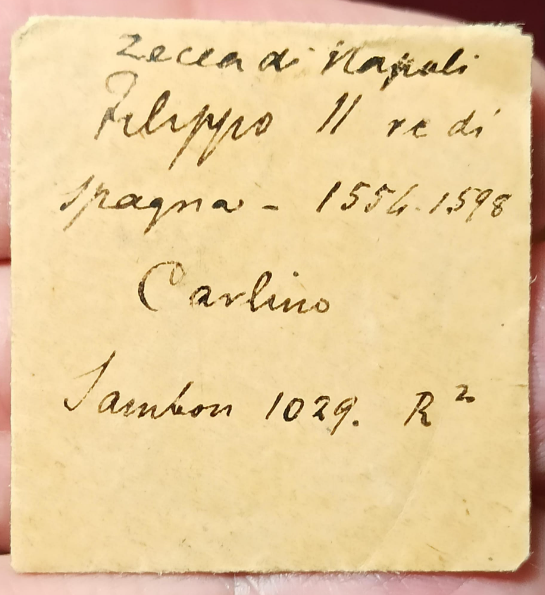 Zecca di Napoli
Filippo II re di
Spagna - 1554-1598
Carlino
Sambon 1029. R²